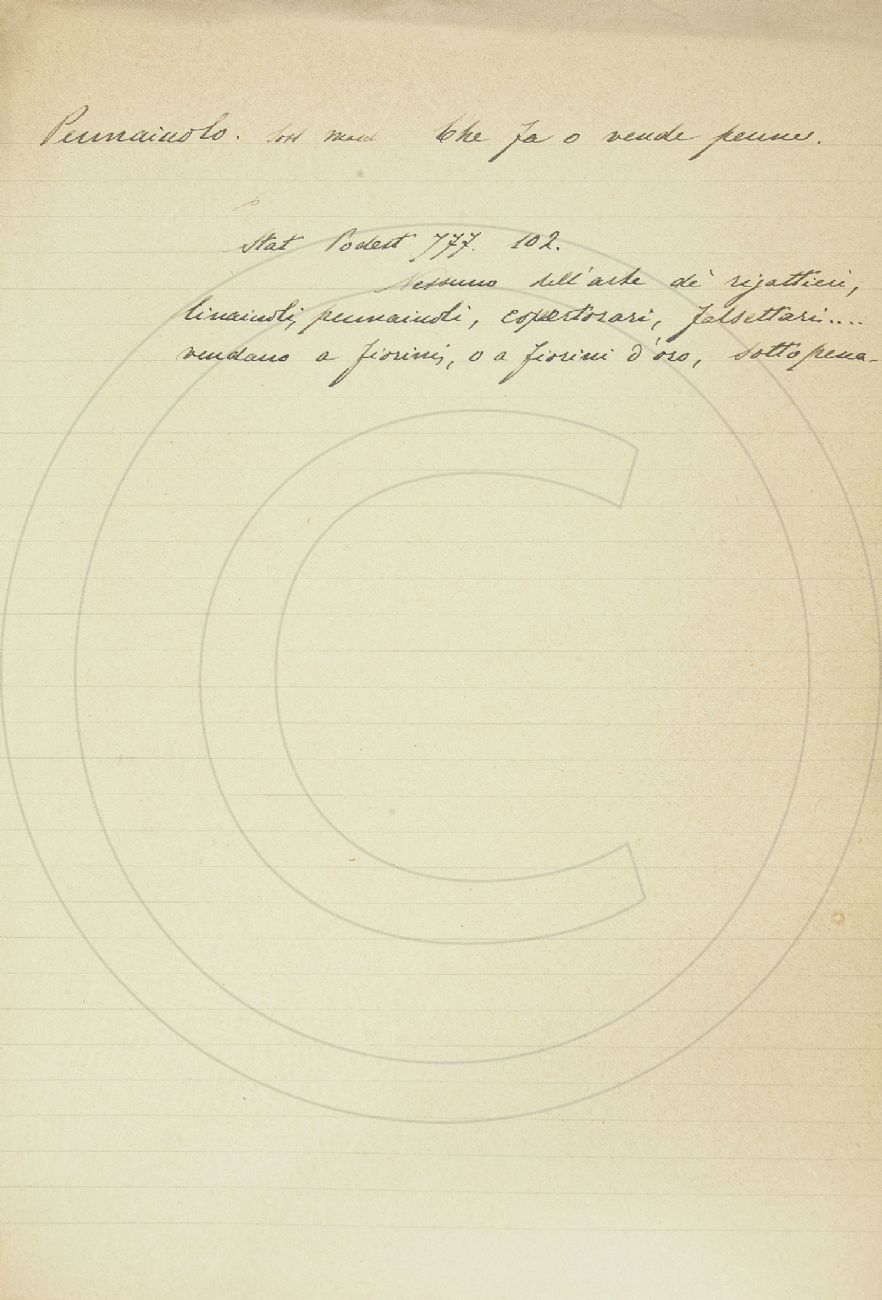 Pennaiuolo. sost masc Che fa o vende penne.
Stat Podest 777. 102.
Nessuno dell'arte de' rigattieri,
linaiuoli, pennaiuoli, copertorari, falsettari....
vendano a fiorini, o a fiorini d'oro, sotto pena-